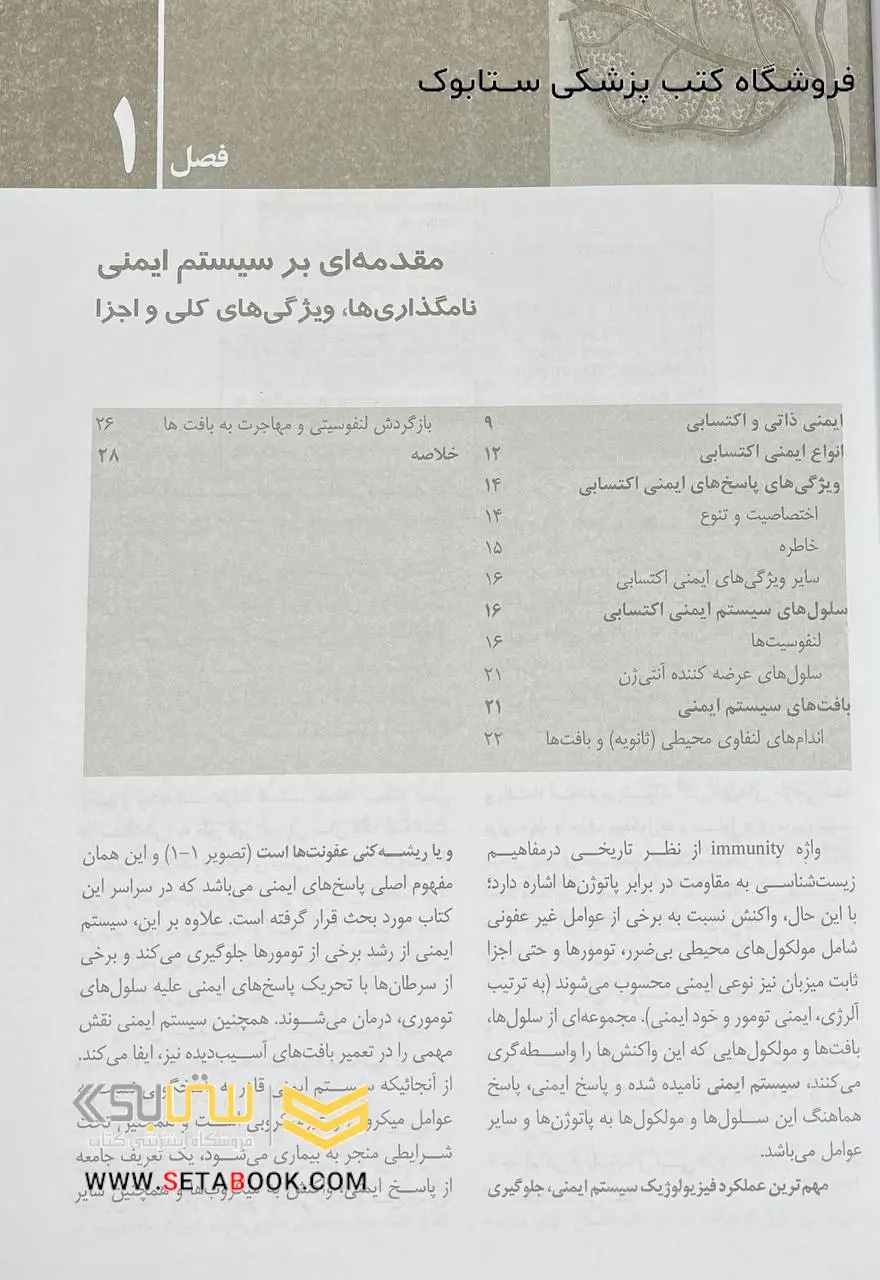 فروشگاه کتب پزشکی ستابوک
فصل ۱
مقدمه‌ای بر سیستم ایمنی
نامگذاری‌ها، ویژگی‌های کلی و اجزا
ایمنی ذاتی و اکتسابی ۹
انواع ایمنی اکتسابی ۱۲
ویژگی‌های پاسخ‌های ایمنی اکتسابی ۱۴
اختصاصیت و تنوع ۱۴
خاطره ۱۵
سایر ویژگی‌های ایمنی اکتسابی ۱۶
سلول‌های سیستم ایمنی اکتسابی ۱۶
لنفوسیت‌ها ۱۶
سلول‌های عرضه کننده آنتی‌ژن ۲۱
بافت‌های سیستم ایمنی ۲۱
اندام‌های لنفاوی محیطی (ثانویه) و بافت‌ها ۲۲
بازگردش لنفوسیتی و مهاجرت به بافت ها ۲۶
خلاصه ۲۸
واژه immunity از نظر تاریخی درمفاهیم
زیست‌شناسی به مقاومت در برابر پاتوژن‌ها اشاره دارد؛
با این حال، واکنش نسبت به برخی از عوامل غیر عفونی
شامل مولکول‌های محیطی بی‌ضرر، تومورها و حتی اجزا
ثابت میزبان نیز نوعی ایمنی محسوب می‌شوند (به ترتیب
آلرژی، ایمنی تومور و خود ایمنی). مجموعه‌ای از سلول‌ها،
بافت‌ها و مولکول‌هایی که این واکنش‌ها را واسطه‌گری
می‌کنند، سیستم ایمنی نامیده شده و پاسخ ایمنی، پاسخ
هماهنگ این سلول‌ها و مولکول‌ها به پاتوژن‌ها و سایر
عوامل می‌باشد.
مهم‌ترین عملکرد فیزیولوژیک سیستم ایمنی، جلوگیری
و یا ریشه‌کنی عفونت‌ها است (تصویر ۱-۱) و این همان
مفهوم اصلی پاسخ‌های ایمنی می‌باشد که در سراسر این
کتاب مورد بحث قرار گرفته است. علاوه بر این، سیستم
ایمنی از رشد برخی از تومورها جلوگیری می‌کند و برخی
از سرطان‌ها با تحریک پاسخ‌های ایمنی علیه سلول‌های
توموری، درمان می‌شوند. همچنین سیستم ایمنی نقش
مهمی را در تعمیر بافت‌های آسیب‌دیده نیز، ایفا می‌کند.
از آنجائیکه سیستم ایمنی
عوامل
شرایطی منجر به بیماری می‌شود، یک تعریف جامعه
از پاسخ ایمنی، واکنش به میکروب‌ها و همچنین سایر
ستابوک
فروشگاه اینترنتی کتاب
WWW.SETABOOK.COM